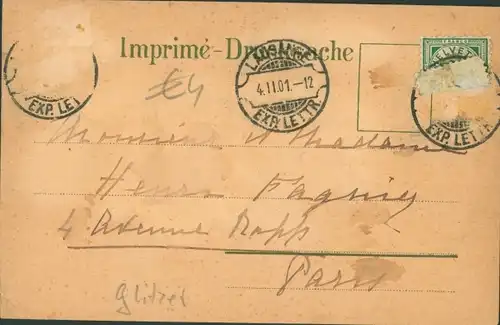 Imprimé - Drucksache
HELVETIA
FRANCO
LAUSANNE
4.II.01.-12
EXP. LETTR.
EXP. LETTR.
EXP. LETTR.
€4
Monsieur et Madame
Henri
4 Avenue Rapp
Paris
Glitzer